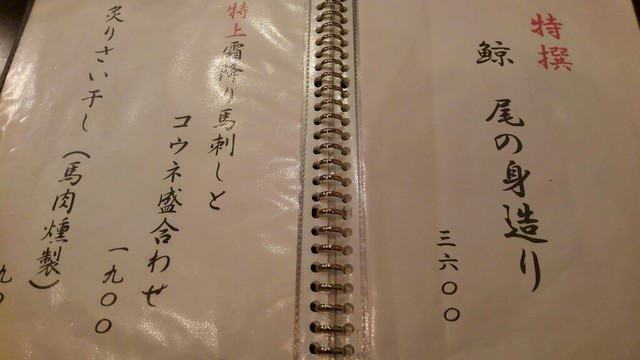 特撰
鯨 尾の身造り
三六〇〇
特上霜降り馬刺しと
コウネ盛合わせ
一九〇〇
炙りさい干し(馬肉燻製)
九